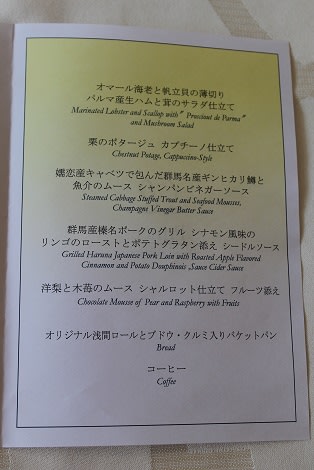 オマール海老と帆立貝の薄切り
パルマ産生ハムと茸のサラダ仕立て
Marinated Lobster and Scallop with" Prosciout de Parma"
and Mushroom Salad
栗のポタージュ カプチーノ仕立て
Chestnut Potage, Cappuccino-Style
嬬恋産キャベツで包んだ群馬名産ギンヒカリ鱒と
魚介のムース シャンパンビネガーソース
Steamed Cabbage Stuffed Trout and Seafood Mousses,
Champagne Vinegar Butter Sauce
群馬産榛名ポークのグリル シナモン風味の
リンゴのローストとポテトグラタン添え シードルソース
Grilled Haruna Japanese Pork Loin with Roasted Apple Flavored
Cinnamon and Potato Douphinois ,Sauce Cider Sauce
洋梨と木苺のムース シャルロット仕立て フルーツ添え
Chocolate Mousse of Pear and Raspberry with Fruits
オリジナル浅間ロールとブドウ・クルミ入りバケットパン
Bread
コーヒー
Coffee